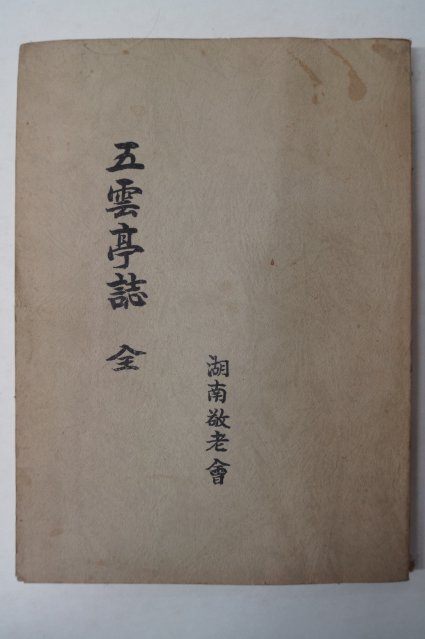 五雲亭誌 全
湖南敬老會